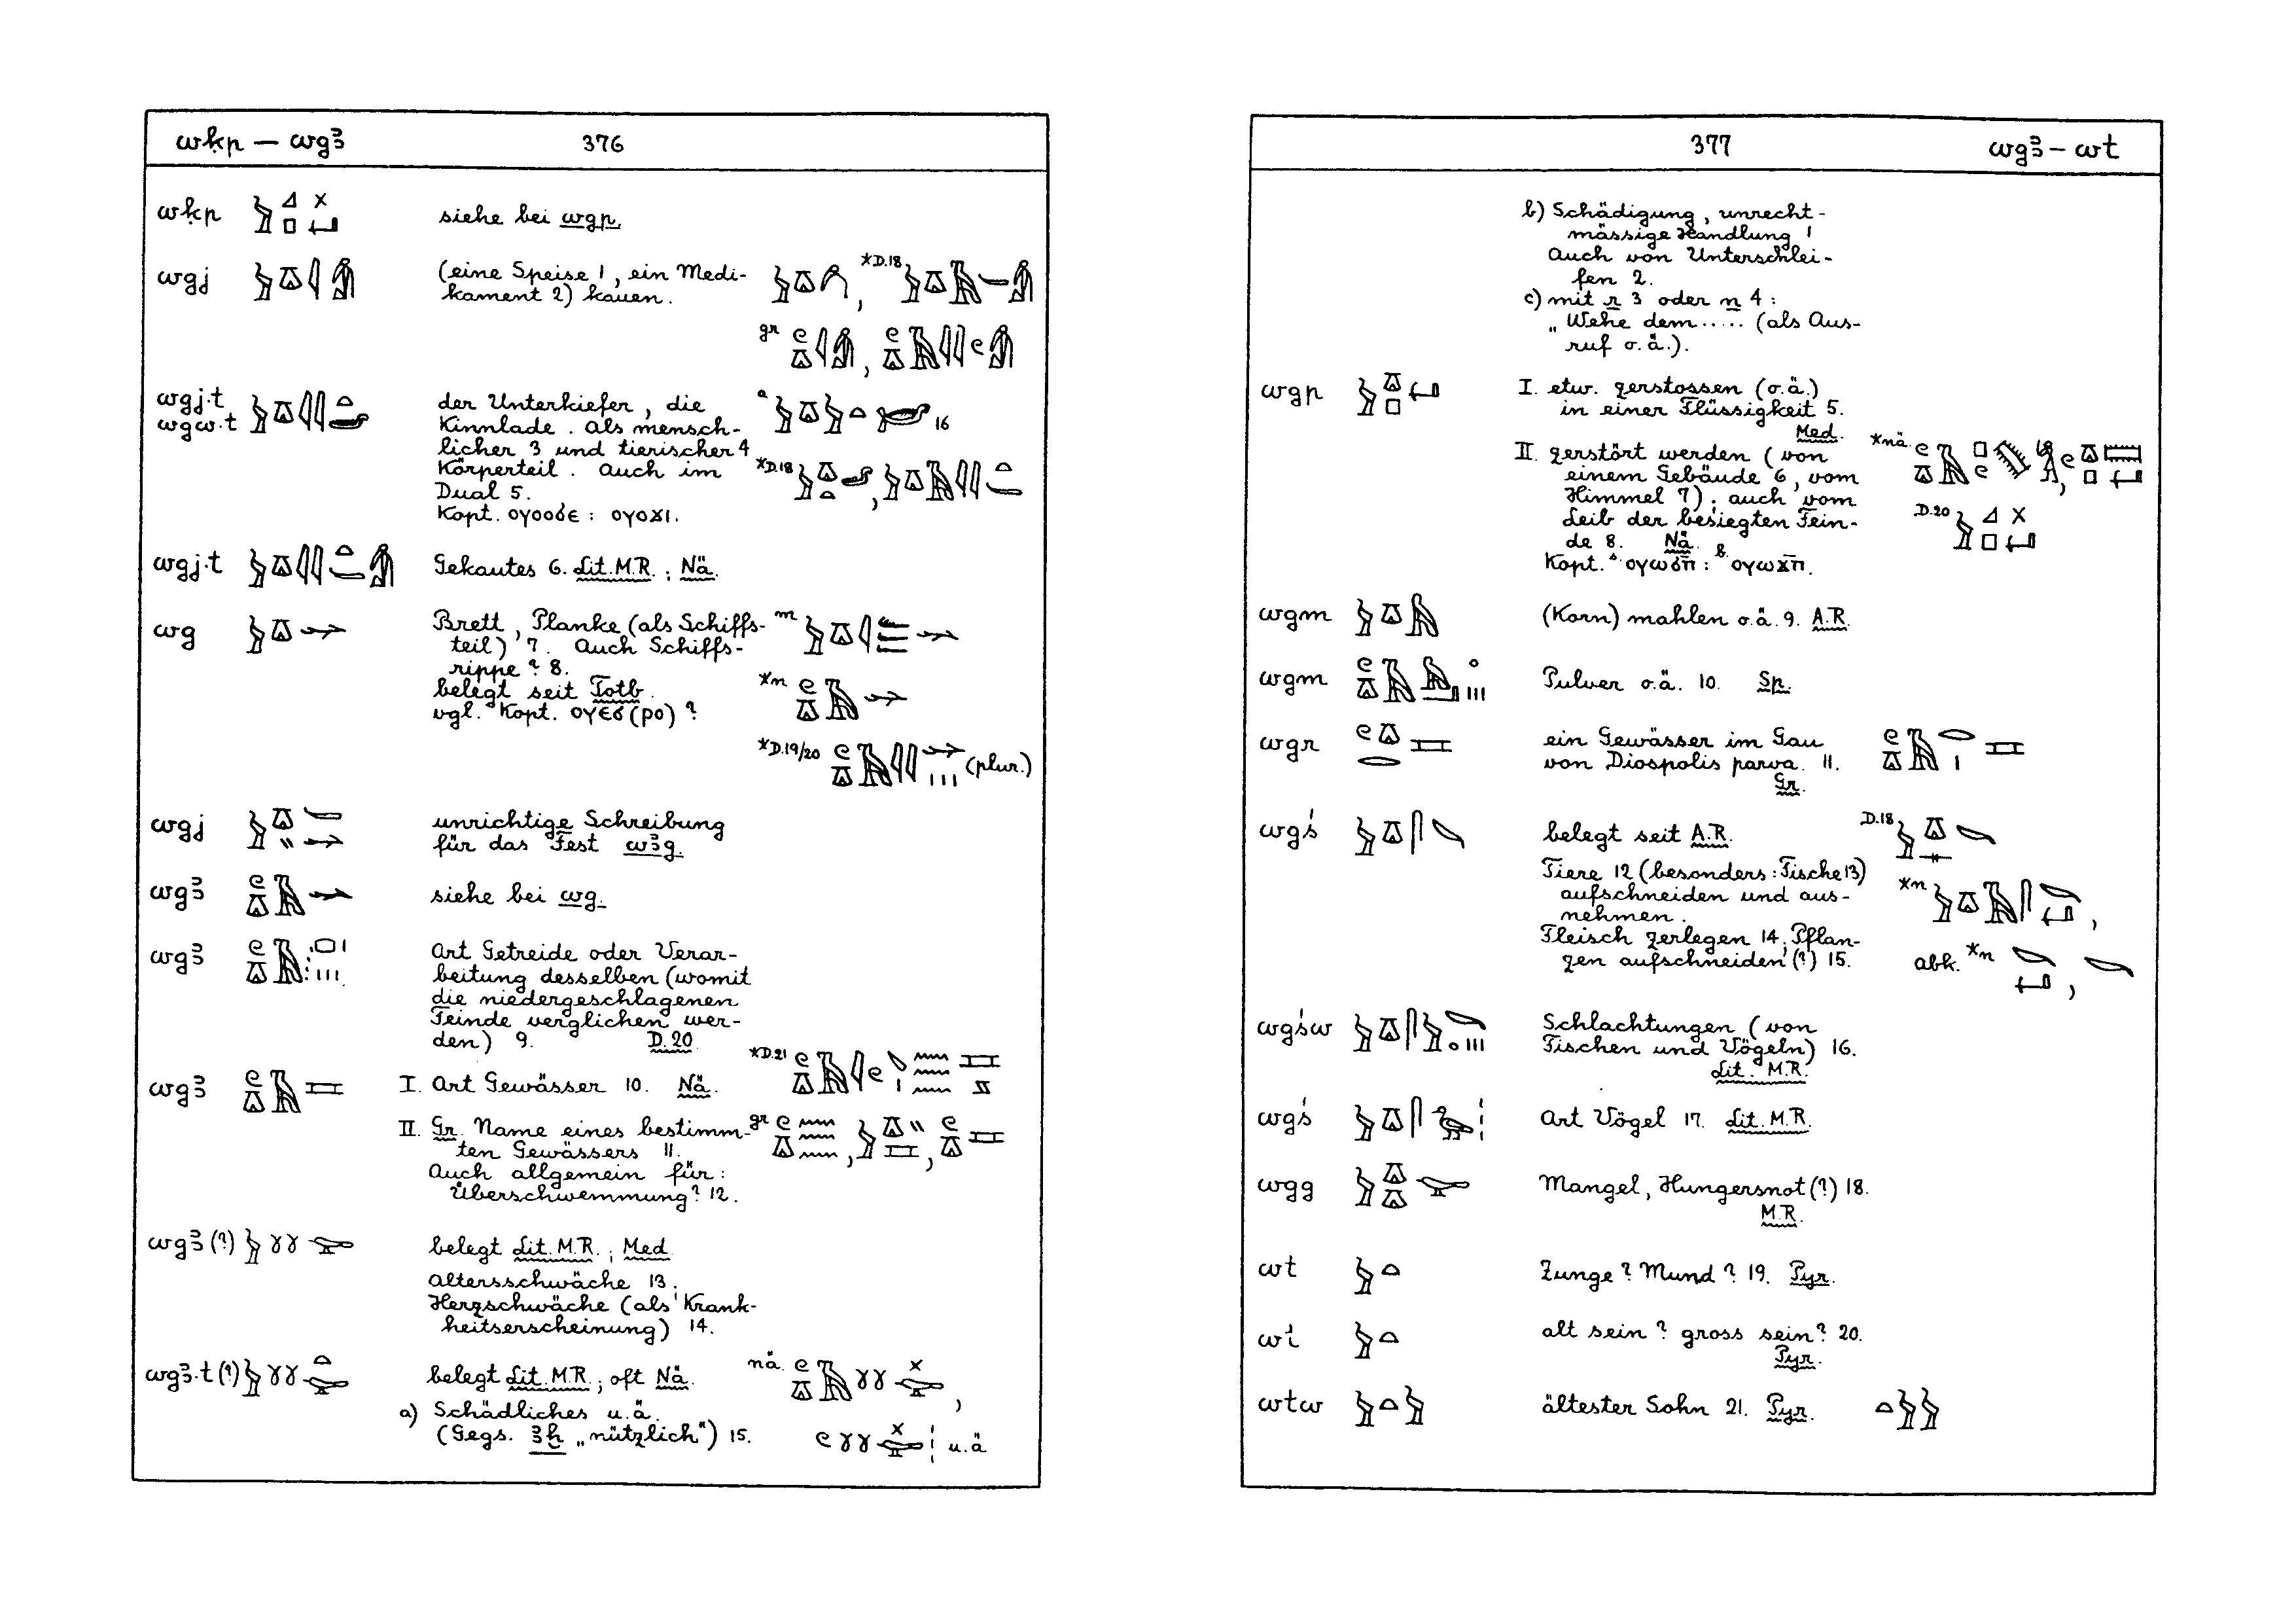 wḳp — wgꜣ 376
wḳp siehe bei wgp.
wgj (eine Speise 1, ein Medi-
kament 2) kauen. *D.18
gr
wgj.t
wgw.t
der Unterkiefer, die
Kinnlade. Als mensch-
licher 3 und tierischer 4
Körperteil. Auch im
Dual 5.
Kopt. ⲟⲩⲟⲟϭⲉ : ⲟⲩⲟϫⲓ.
a 16
*D.18
wgj.t Gekautes 6. Lit. M.R.; Nä.
wg Brett, Planke (als Schiffs-
teil) 7. Auch Schiffs-
rippe? 8.
belegt seit Totb.
vgl. Kopt. ⲟⲩⲉϭ(ⲣⲟ)?
m
*n
*D.19/20 (plur.)
wgj unrichtige Schreibung
für das Fest wꜣg.
wgꜣ siehe bei wg.
wgꜣ Art Getreide oder Verar-
beitung desselben (womit
die niedergeschlagenen
Feinde verglichen wer-
den) 9. D.20
wgꜣ I. Art Gewässer 10. Nä. *D.21
II. Gr. Name eines bestimm-
ten Gewässers 11.
Auch allgemein für:
Überschwemmung? 12.
gr
wgꜣ(?) belegt Lit. M.R.; Med.
Altersschwäche 13;
Herzschwäche (als Krank-
heitserscheinung) 14.
wgꜣ.t(?) belegt Lit. M.R.; oft Nä. nä
a) Schädliches u.ä.
(Gegs. ꜣḫ „nützlich“) 15. u.ä
377 wgꜣ — wt
b) Schädigung, unrecht-
mässige Handlung 1
Auch von Unterschlei-
fen 2.
c) mit r 3 oder n 4:
„Wehe dem..... (als Aus-
ruf o.ä.).
wgp I. etw. zerstossen (o.ä.)
in einer Flüssigkeit 5.
Med.
II. zerstört werden (von
einem Gebäude 6, vom
Himmel 7); auch vom
Leib der besiegten Fein-
de 8. Nä.
Kopt. s ⲟⲩⲱϭⲡ̄ : b ⲟⲩⲱϫⲡ̄.
*nä
D.20
wgm (Korn) mahlen o.ä. 9. A.R.
wgm Pulver o.ä. 10. Sp.
wgr ein Gewässer im Gau
von Diospolis parva. 11.
Gr.
wgś belegt seit A.R. D.18
Tiere 12 (besonders: Fische 13)
aufschneiden und aus-
nehmen.
Fleisch zerlegen 14; Pflan-
zen aufschneiden (?) 15.
*n
abk. *n
wgśw Schlachtungen (von
Fischen und Vögeln) 16.
Lit. M.R.
wgś Art Vögel 17. Lit. M.R.
wgg Mangel, Hungersnot (?) 18.
M.R.
wt Zunge? Mund? 19. Pyr.
wt alt sein? gross sein? 20.
Pyr.
wtw ältester Sohn 21. Pyr.